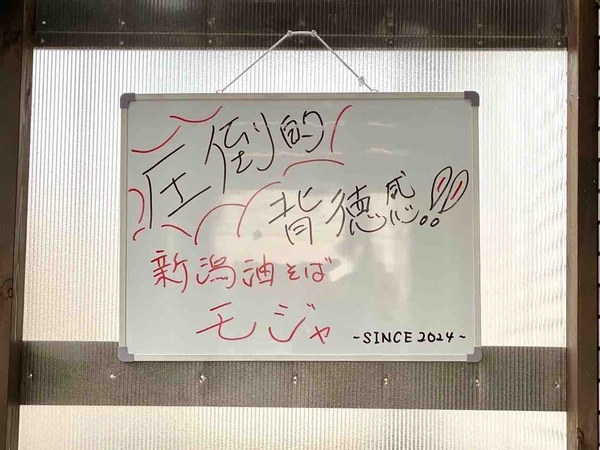 圧倒的
背徳感!!
新潟油そば
モジャ
~SINCE 2024~